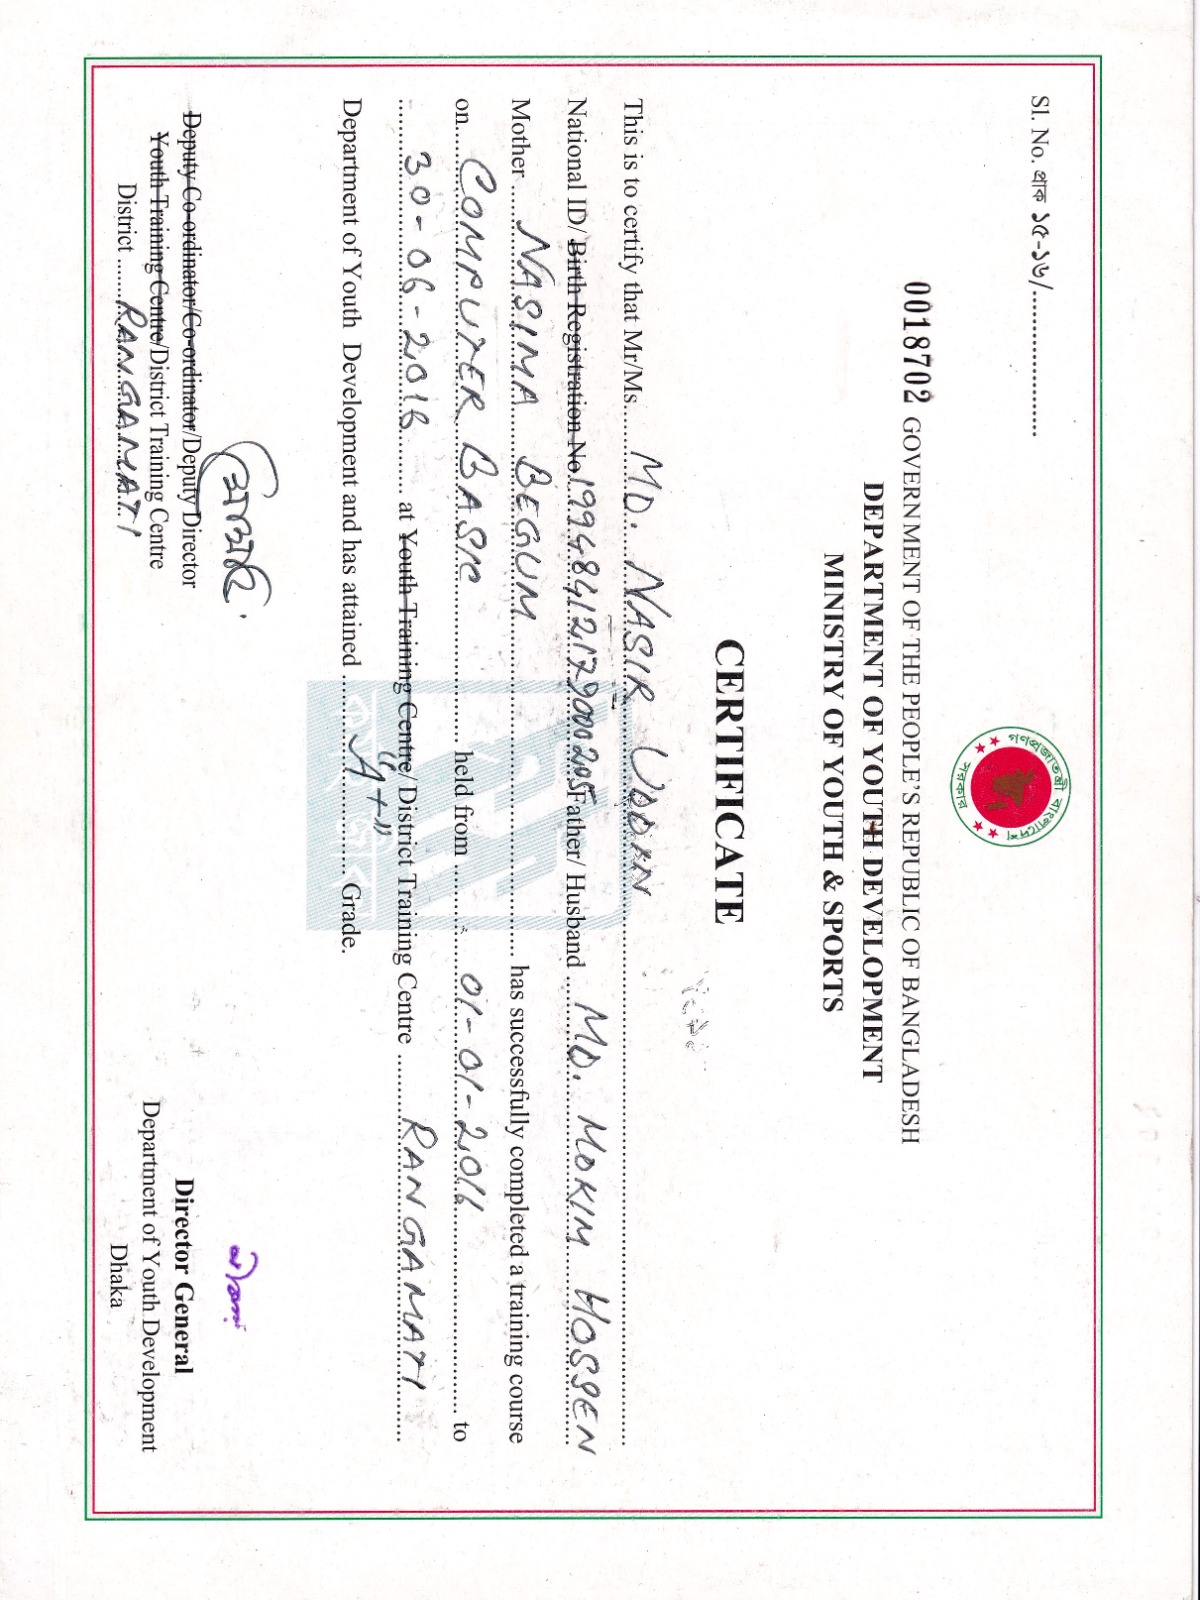 Sl. No. প্রাক ১৫-১৬/....................
গণপ্রজাতন্ত্রী বাংলাদেশ
সরকার
0018702 GOVERNMENT OF THE PEOPLE'S REPUBLIC OF BANGLADESH
DEPARTMENT OF YOUTH DEVELOPMENT
MINISTRY OF YOUTH & SPORTS
CERTIFICATE
This is to certify that Mr/Ms. MD. NASIR UDDIN
National ID/ Birth Registration No 19948412179000205 Father/ Husband MD. MOKIM HOSSEN
Mother NASIMA BEGUM has successfully completed a training course
on COMPUTER BASIC held from 01-01-2016 to
30-06-2016 at Youth Training Centre/ District Training Centre RANGAMATI
Department of Youth Development and has attained "A+" Grade.
Deputy Co-ordinator/Co-ordinator/Deputy Director
Youth Training Centre/District Training Centre
District RANGAMATI
Director General
Department of Youth Development
Dhaka